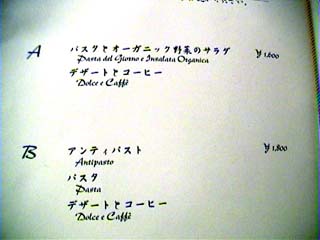 A パスタとオーガニック野菜のサラダ ¥1,600
Pasta del Giorno e Insalata Organica
デザートとコーヒー
Dolce e Caffè
B アンティパスト ¥1,800
Antipasto
パスタ
Pasta
デザートとコーヒー
Dolce e Caffè